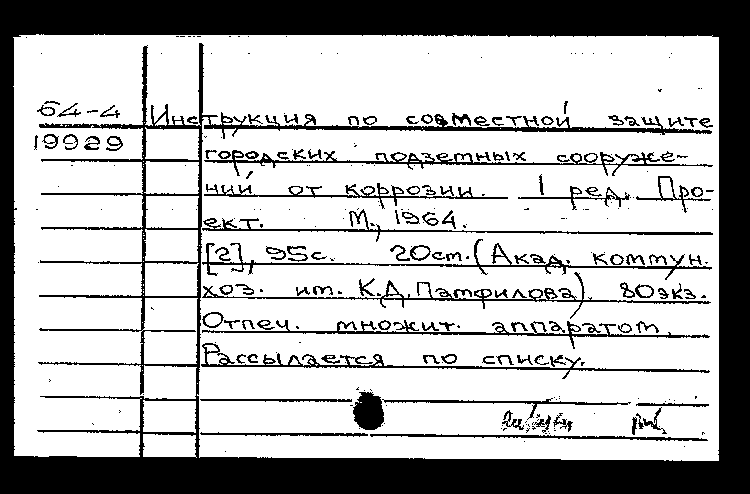 64-4 Инструкция по совместной защите
19929 городских подземных сооруже-
ний от коррозии. 1 ред. Про-
ект. М., 1964.
[2], 95с. 20см. (Акад. коммун.
хоз. им. К.Д. Памфилова). 80экз.
Отпеч. множит. аппаратом.
Рассылается по списку.